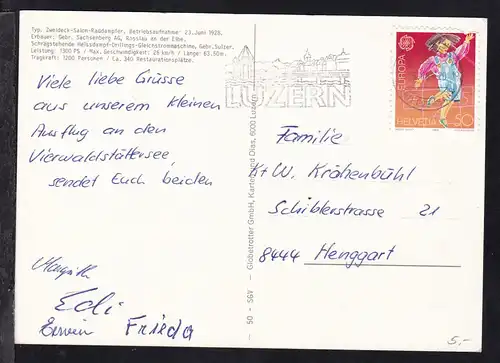 Typ. Zweideck-Salon-Raddampfer, Betriebsaufnahme 23.Juni 1928.
Erbauer: Gebr. Sachsenberg AG, Rosslau an der Elbe.
Schrägstehende Heissdampf-Drillings-Gleichstrommaschine, Gebr.Sulzer.
Leistung: 1300 PS / Max. Geschwindigkeit: 28 km/h / Länge: 63.50m.
Tragkraft: 1200 Personen / Ca. 340 Restaurationsplätze.
Viele liebe Grüsse
aus unserem kleinen
Ausflug an den
Vierwaldstättersee,
sendet Euch beiden
Margrith
Edi
Erwin Frieda
50 - SGV - Globetrotter GmbH, Karten und Dias, 6000 Luzern
LUZERN
EUROPA
HELVETIA 50
Familie
K+W. Krähenbühl
Schiblerstrasse 21
8444 Henggart
5,-